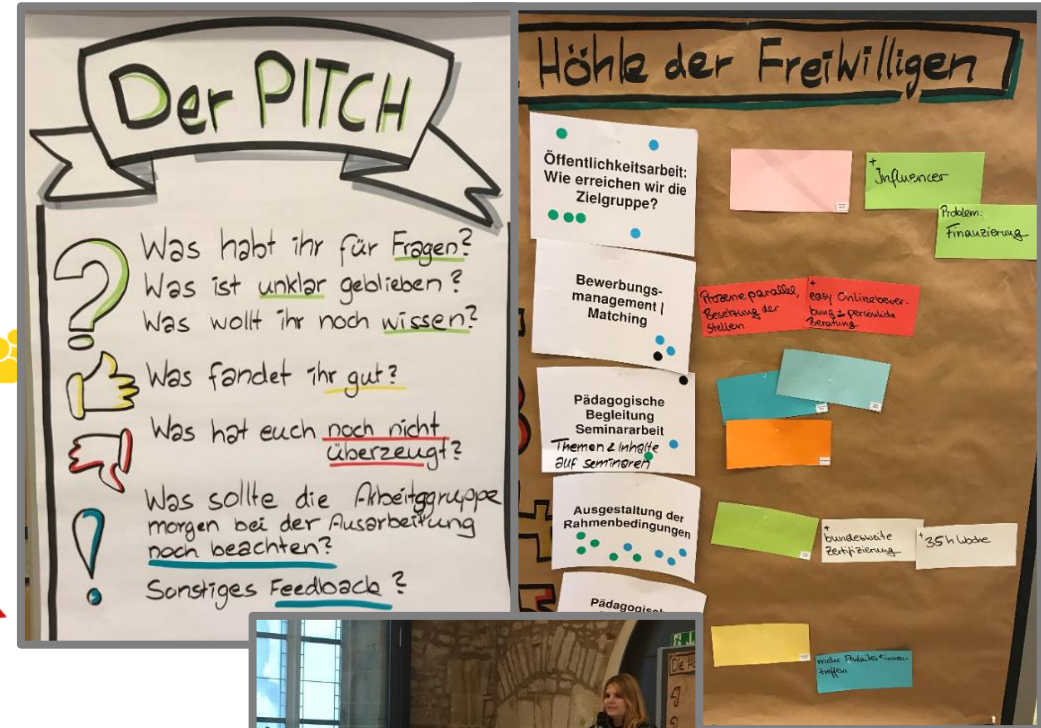 Der PITCH
Was habt ihr für Fragen?
Was ist unklar geblieben?
Was wollt ihr noch wissen?
Was fandet ihr gut?
Was hat euch noch nicht
überzeugt?
Was sollte die Arbeitsgruppe
morgen bei der Ausarbeitung
noch beachten?
Sonstiges Feedback?
Höhle der Freiwilligen
Öffentlichkeitsarbeit:
Wie erreichen wir die
Zielgruppe?
+
Influencer
Problem:
Finanzierung
Bewerbungs-
management |
Matching
Prozesse parallel,
Besetzung der
Stellen
+
easy Onlinebewer-
bung + persönliche
Beratung
Pädagogische
Begleitung
Seminararbeit
Themen & Inhalte
auf Seminaren
Ausgestaltung der
Rahmenbedingungen
+
bundesweite
Zertifizierung
+ 35h Woche
mehr
treffen
Die